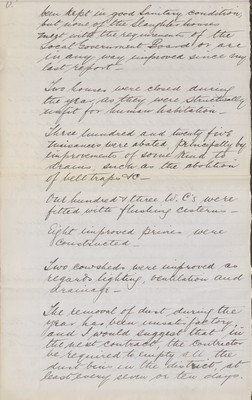 been kept in good Sanitary condition
but none of the Slaughter houses
meet with the requirements of the
Local Government Board or are
in any way improved since my
last report —
Two houses were closed during
the year as they were structurally
unfit for human habitation —
Three hundred and twenty five
Nuisances were abated, principally by
improvements of some kind to
drains, such as the abolition
of bell traps &c —
One hundred & three W.C's were
fitted with flushing cisterns —
Eight improved privies were
constructed —
Two cowsheds were improved as
regards lighting, ventilation and
drainage —
The removal of dust during the
year has been unsatisfactory,
and I would suggest that in
the next contract, the contractor
be required to empty all the
dust bins in the district, at
least every seven or ten days.